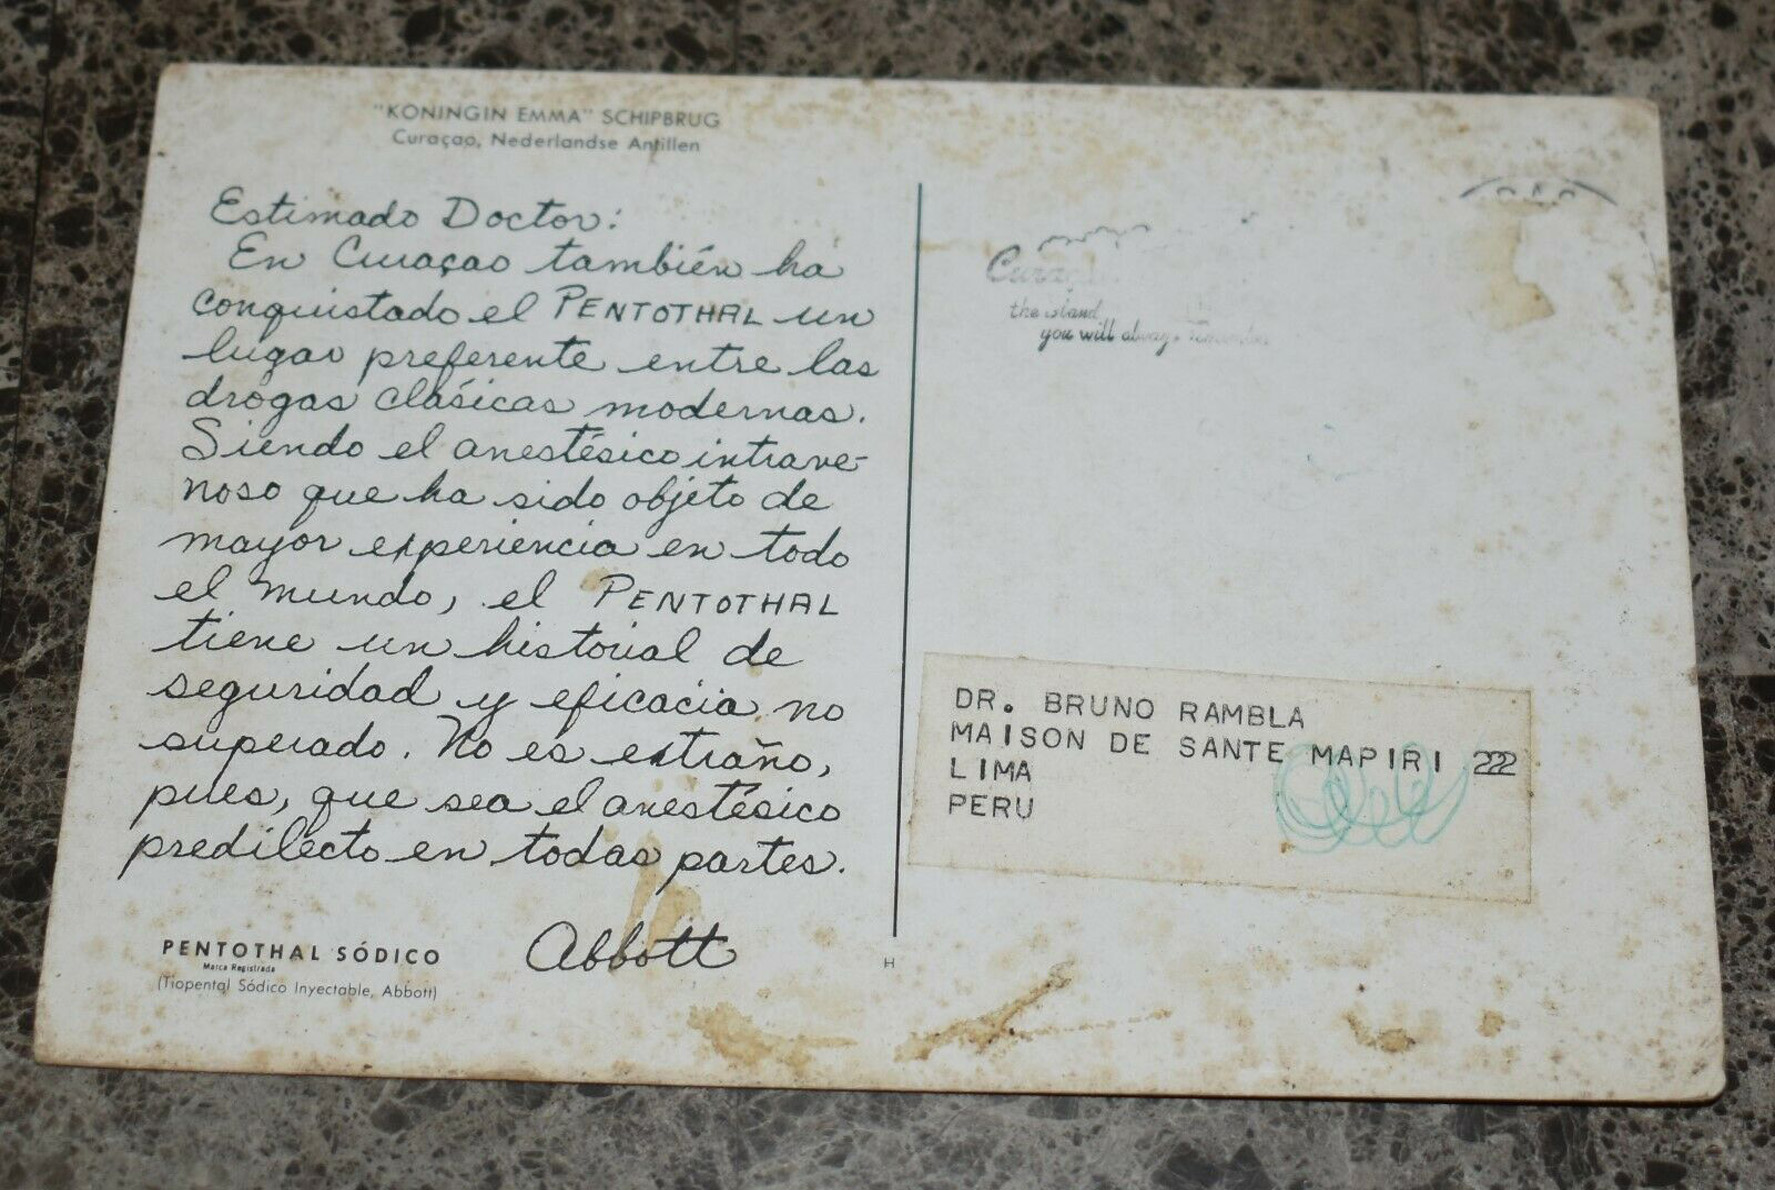 "KONINGIN EMMA" SCHIPBRUG
Curaçao, Nederlandse Antillen
Estimado Doctor:
En Curaçao también ha
conquistado el PENTOTHAL un
lugar preferente entre las
drogas clásicas modernas.
Siendo el anestésico intrave-
noso que ha sido objeto de
mayor experiencia en todo
el mundo, el PENTOTHAL
tiene un historial de
seguridad y eficacia no
superado. No es extraño,
pues, que sea el anestésico
predilecto en todas partes.
Abbott
PENTOTHAL SÓDICO
Marca Registrada
(Tiopental Sódico Inyectable, Abbott)
H
the island
you will always remember
DR. BRUNO RAMBLA
MAISON DE SANTE MAPIRI 222
LIMA
PERU